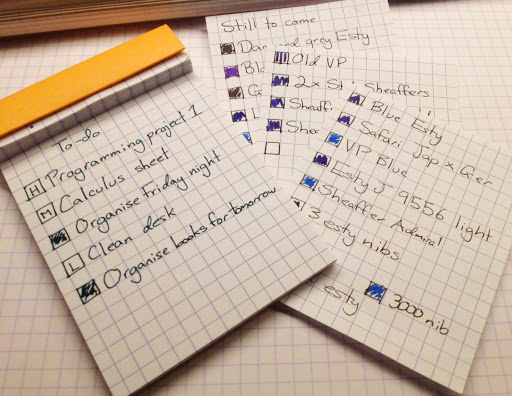 To-do
H Programming project 1
M Calculus sheet
Organise Friday night
L Clean desk
Organise books for tomorrow
Still to come
grey Esty
Old VP
2x Sheaffers
Sheaff
Shea
Blue Esty
Safari Jap x Ger
VP Blue
Esty J 9556 light
Sheaffer Admiral
3 esty nibs
esty
3000 nib